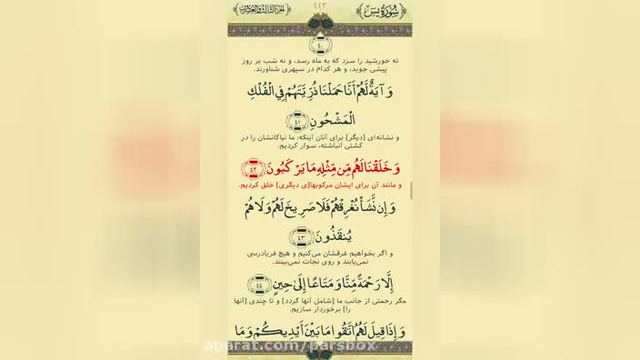 سُورَةُ يسٓ ٤٤٣ الجزء الثالث والعشرون
٤٠
نه خورشید را سزد که به ماه رسد، و نه شب بر روز
پیشی جوید، و هر کدام در سپهری شناورند.
وَ آيَةٌ لَّهُمْ أَنَّا حَمَلْنَا ذُرِّيَّتَهُمْ فِي الْفُلْكِ
الْمَشْحُونِ ٤١
و نشانه‌ای [دیگر] برای آنان اینکه: ما نیاکانشان را در
کشتی انباشته، سوار کردیم.
وَ خَلَقْنَا لَهُم مِّن مِّثْلِهِ مَا يَرْكَبُونَ ٤٢
و مانند آن برای ایشان مرکوبها[ی دیگری] خلق کردیم.
وَ إِن نَّشَأْ نُغْرِقْهُمْ فَلَا صَرِيخَ لَهُمْ وَ لَا هُمْ
يُنقَذُونَ ٤٣
و اگر بخواهیم غرقشان می‌کنیم و هیچ فریادرسی
نمی‌یابند و روی نجات نمی‌بینند.
إِلَّا رَحْمَةً مِّنَّا وَ مَتَاعًا إِلَىٰ حِينٍ ٤٤
مگر رحمتی از جانب ما [شامل آنها گردد] و تا چندی [آنها
را] برخوردار سازیم.
وَ إِذَا قِيلَ لَهُمُ اتَّقُوا مَا بَيْنَ أَيْدِيكُمْ وَ مَا
aparat.com/parsbox